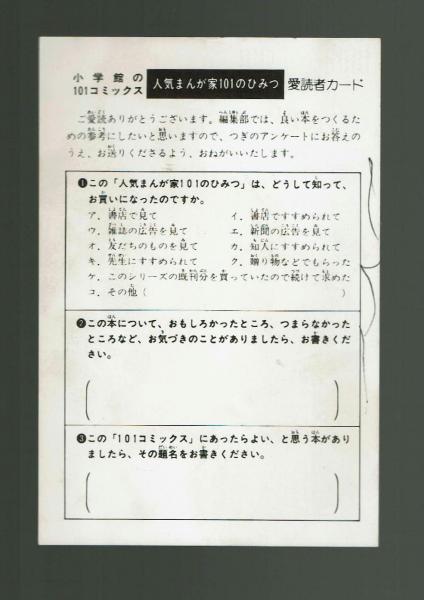 小学館の
101コミックス
人気まんが家101のひみつ
愛読者カード
ご愛読ありがとうございます。編集部では、良い本をつくるた
めの参考にしたいと思いますので、つぎのアンケートにお答えの
うえ、お送りくださるよう、おねがいいたします。
❶この「人気まんが家101のひみつ」は、どうして知って、
お買いになったのですか。
ア．書店で見て　イ．書店ですすめられて
ウ．雑誌の広告を見て　エ．新聞の広告を見て
オ．友だちのものを見て　カ．知人にすすめられて
キ．先生にすすめられて　ク．贈り物などでもらった
ケ．このシリーズの既刊分を買っていたので続けて求めた
コ．その他（　）
❷この本について、おもしろかったところ、つまらなかった
ところなど、お気づきのことがありましたら、お書きくだ
さい。
❸この「101コミックス」にあったらよい、と思う本があり
ましたら、その題名をお書きください。